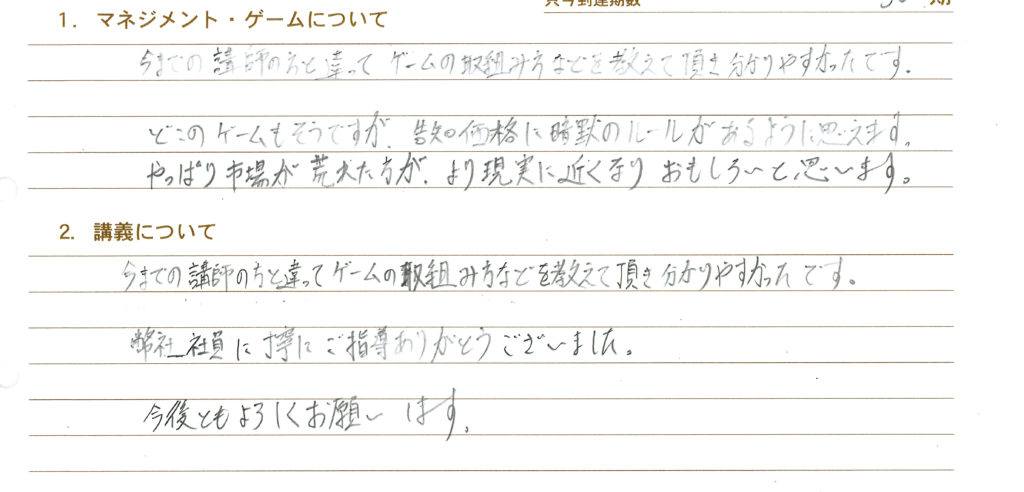 只今到達期数 30 期
1. マネジメント・ゲームについて
今までの講師の方と違ってゲームの取組み方などを教えて頂き分かりやすかったです。
どこのゲームもそうですが、数の価格に暗黙のルールがあるように思えます。
やっぱり市場が荒れた方が、より現実に近くなりおもしろいと思います。
2. 講義について
今までの講師の方と違ってゲームの取組み方などを教えて頂き分かりやすかったです。
弊社社員に丁寧にご指導ありがとうございました。
今後ともよろしくお願い します。